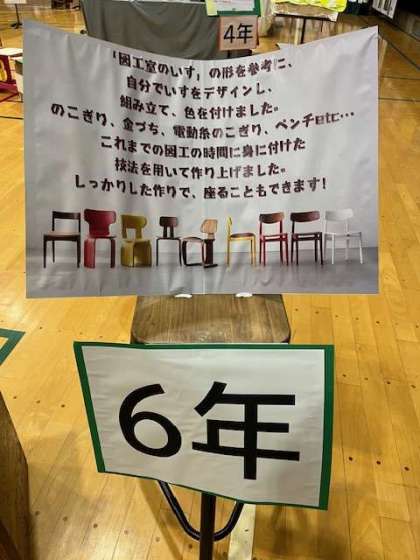 4年
「図工室のいす」の形を参考に、
自分でいすをデザインし、
組み立て、色を付けました。
のこぎり、金づち、電動糸のこぎり、ペンチetc…
これまでの図工の時間に身に付けた
技法を用いて作り上げました。
しっかりした作りで、座ることもできます!
6年